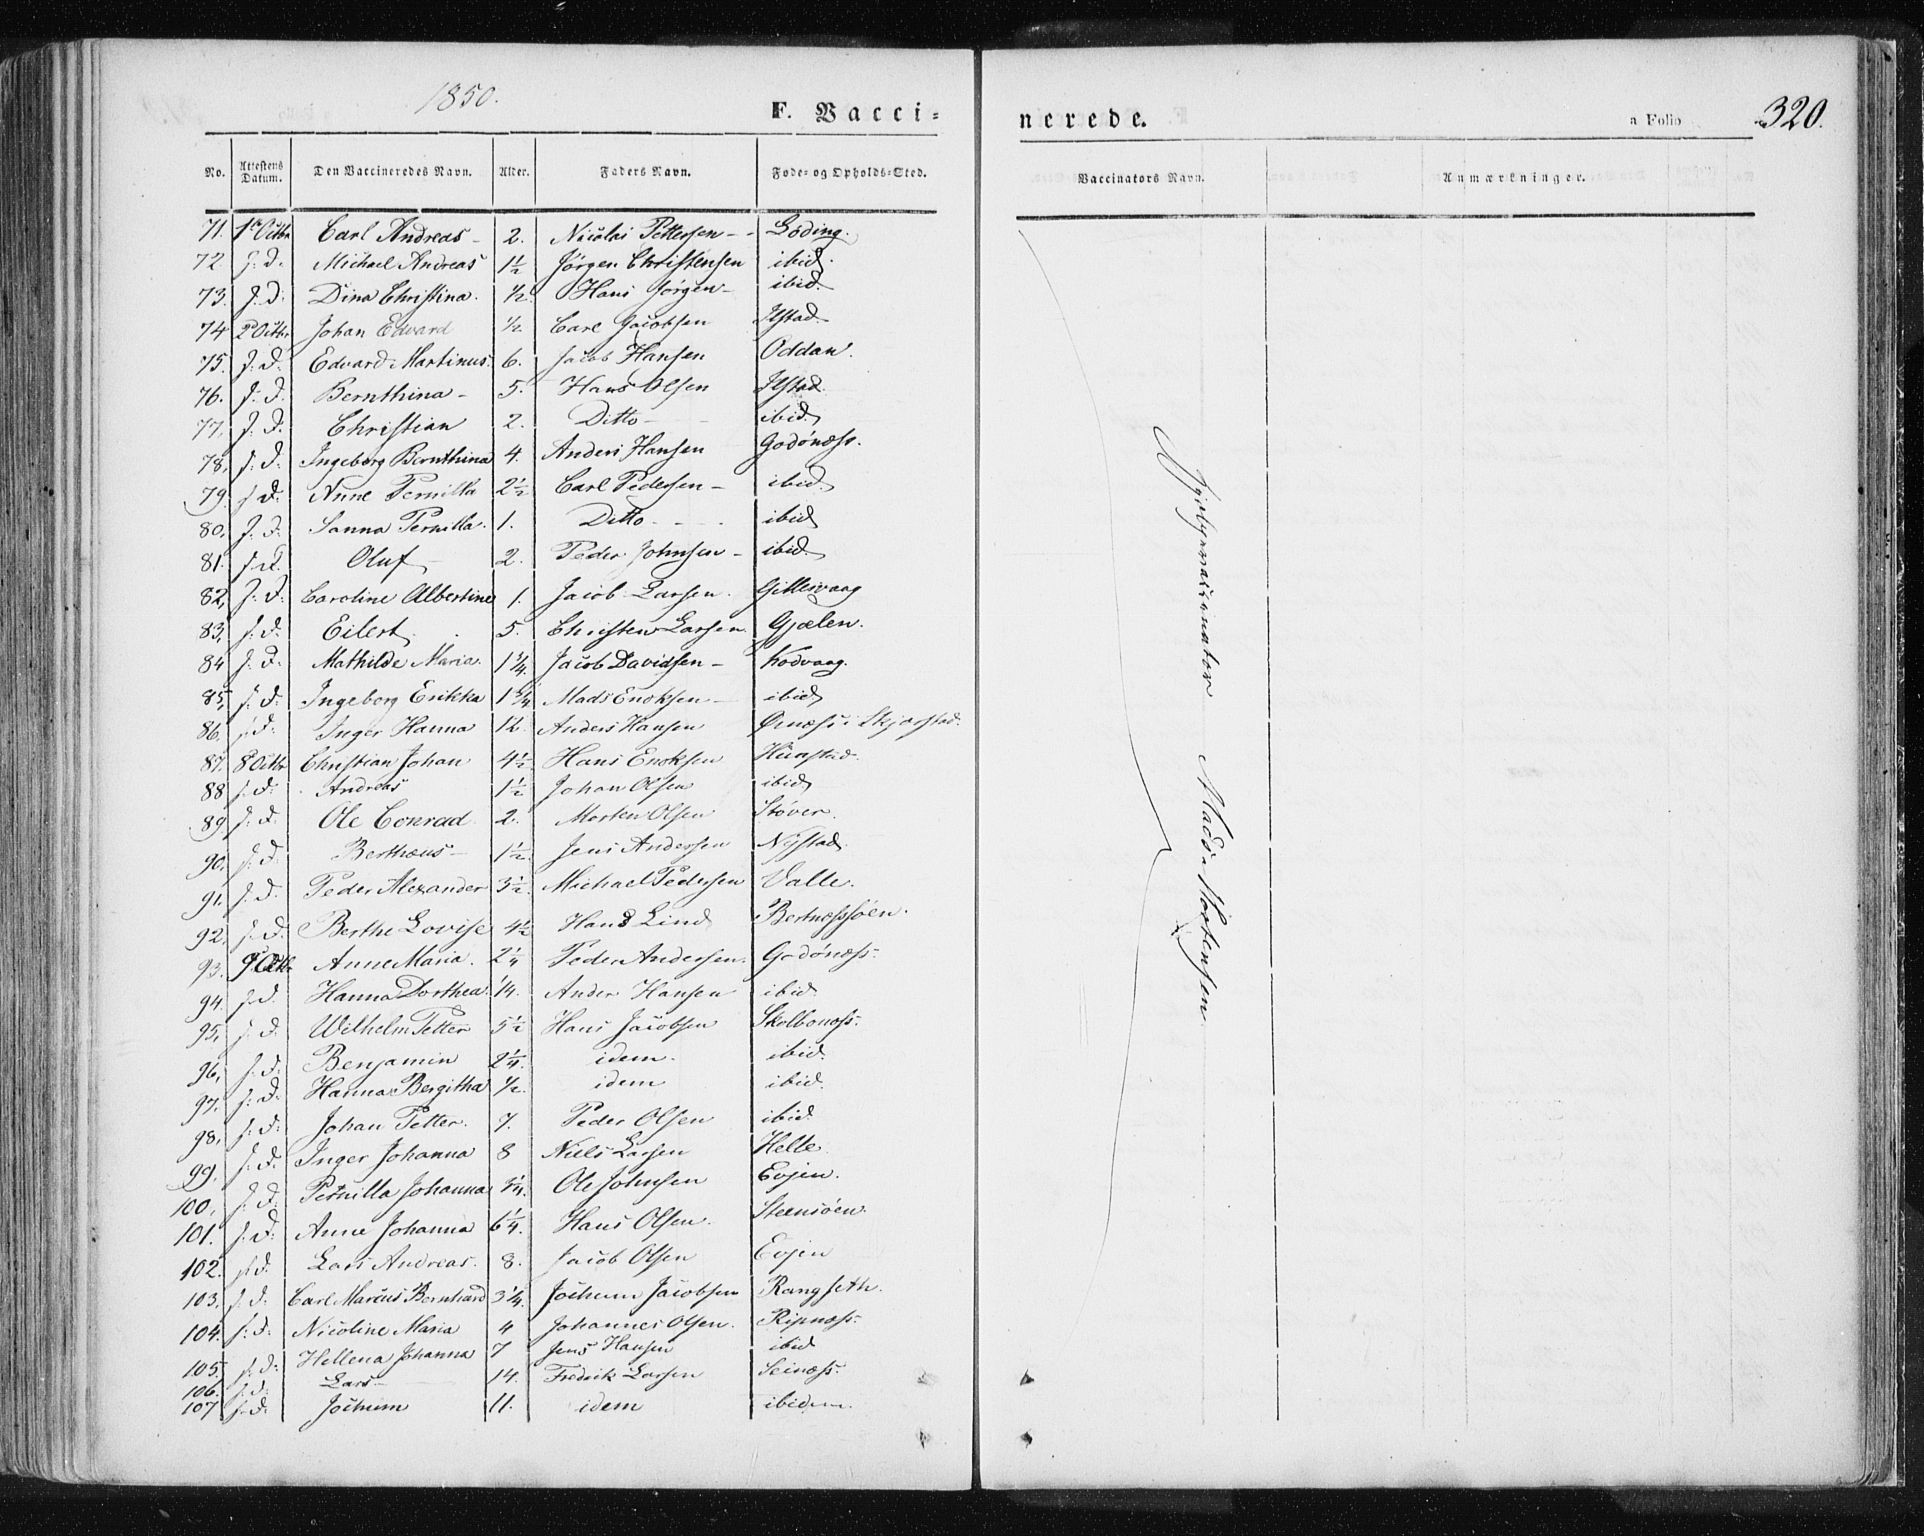 1850.
F. Vacci=
nerede.
a Folio
320.
No. Attestens Datum. Den Vaccineredes Navn. Alder. Faders Navn. Føde- og Opholds-Sted.
Vaccinators Navn. Anmærkninger.
71. 1ste Octbr Carl Andreas - 2. Nicolai Pettersen - - Løding.
72. s: d. Michael Andreas 1½ Jörgen Christensen ibid.
73. s: d: Dina Christina. ½. Hans Jörgen - ibid.
74 2 Octbr Johan Edvard ½ Carl Jacobsen Ilstad.
75. s. d. Edvard Martinus. 6. Jacob Hansen Oddan.
76. s. d. Bernthina - 5. Hans Olsen Ilstad.
77. s. d. Christian 2. Ditto - ibid.
78. s: d: Ingeborg Bernthina 4. Anders Hansen Godönæss.
79. s d. Anne Pernilla 2½ Carl Pedersen - ibid.
80. s. d. Sanna Pernilla. 1. Ditto - - - ibid
81. s d. Oluf - 2. Peder Johnsen - ibid.
82, s. d. Caroline Albertine 1. Jacob Larsen. Gillesvaag
83, s. d. Eilert. 5. Christen Larsen. Gjælen.
84 s. d. Mathilde Maria. 1¾. Jacob Davidsen - Kodvaag.
85, s. d. Ingeborg Erikka 1¾ Mads Enoksen - ibid
86. s d. Inger Hanna 12. Anders Hansen Örnæss i Skjerstad.
87. 8 Octbr Christian Johan 4½ Hans Enoksen Hunstad.
88 s. d. Andreas 1½ Johan Olsen ibid
89 s. d. Ole Conrad. 2. Morten Olsen Støver.
90. s. d. Berthæus - 1½. Jens Andersen Nÿstad.
91. s. d. Peder Alexander 3½. Michael Pedersen Valle.
92. s. d. Berthe Lovise 4½ Hans Lind Bertnæssöen.
93. 9 Octb. Anne Maria. 2¼ Peder Andersen. Godönæss.
94 s. d. Hanna Dorthea. 14. Anders Hansen ibid.
95, s. d. Wilhelm Petter 5½ Hans Jacobsen Skolbonæss.
96, s. d. Benjamin 2¼. idem. ibid.
97. s. d. Hanna Bergitha ½. idem ibid.
98, s. d. Johan Petter. 7. Peder Olsen ibid.
99, s. d. Inger Johanna 8 Niels Larsen Helle.
100, s. d. Pernilla Johanna ¾. Ole Johnsen Evjen.
101. s. d. Anne Johanna 6¼. Hans Olsen. Steensöen.
102. s. d. Lars Andreas. 8. Jacob Olsen Evjen
103. s. d. Carl Marcus Bernhard 3¼. Jochum Jacobsen Rangseth.
104. s: d. Nicoline Maria 4 Johannes Olsen. Ripnæss.
105. s. d. Hellena Johanna 7 Jens Hansen ibid
106. s. d. Lars - 14. Fredrik Larsen Seinæss.
107 s. d. Jochum 11. idem ibidem.
Hjælpevaccinator Mads Mortensen